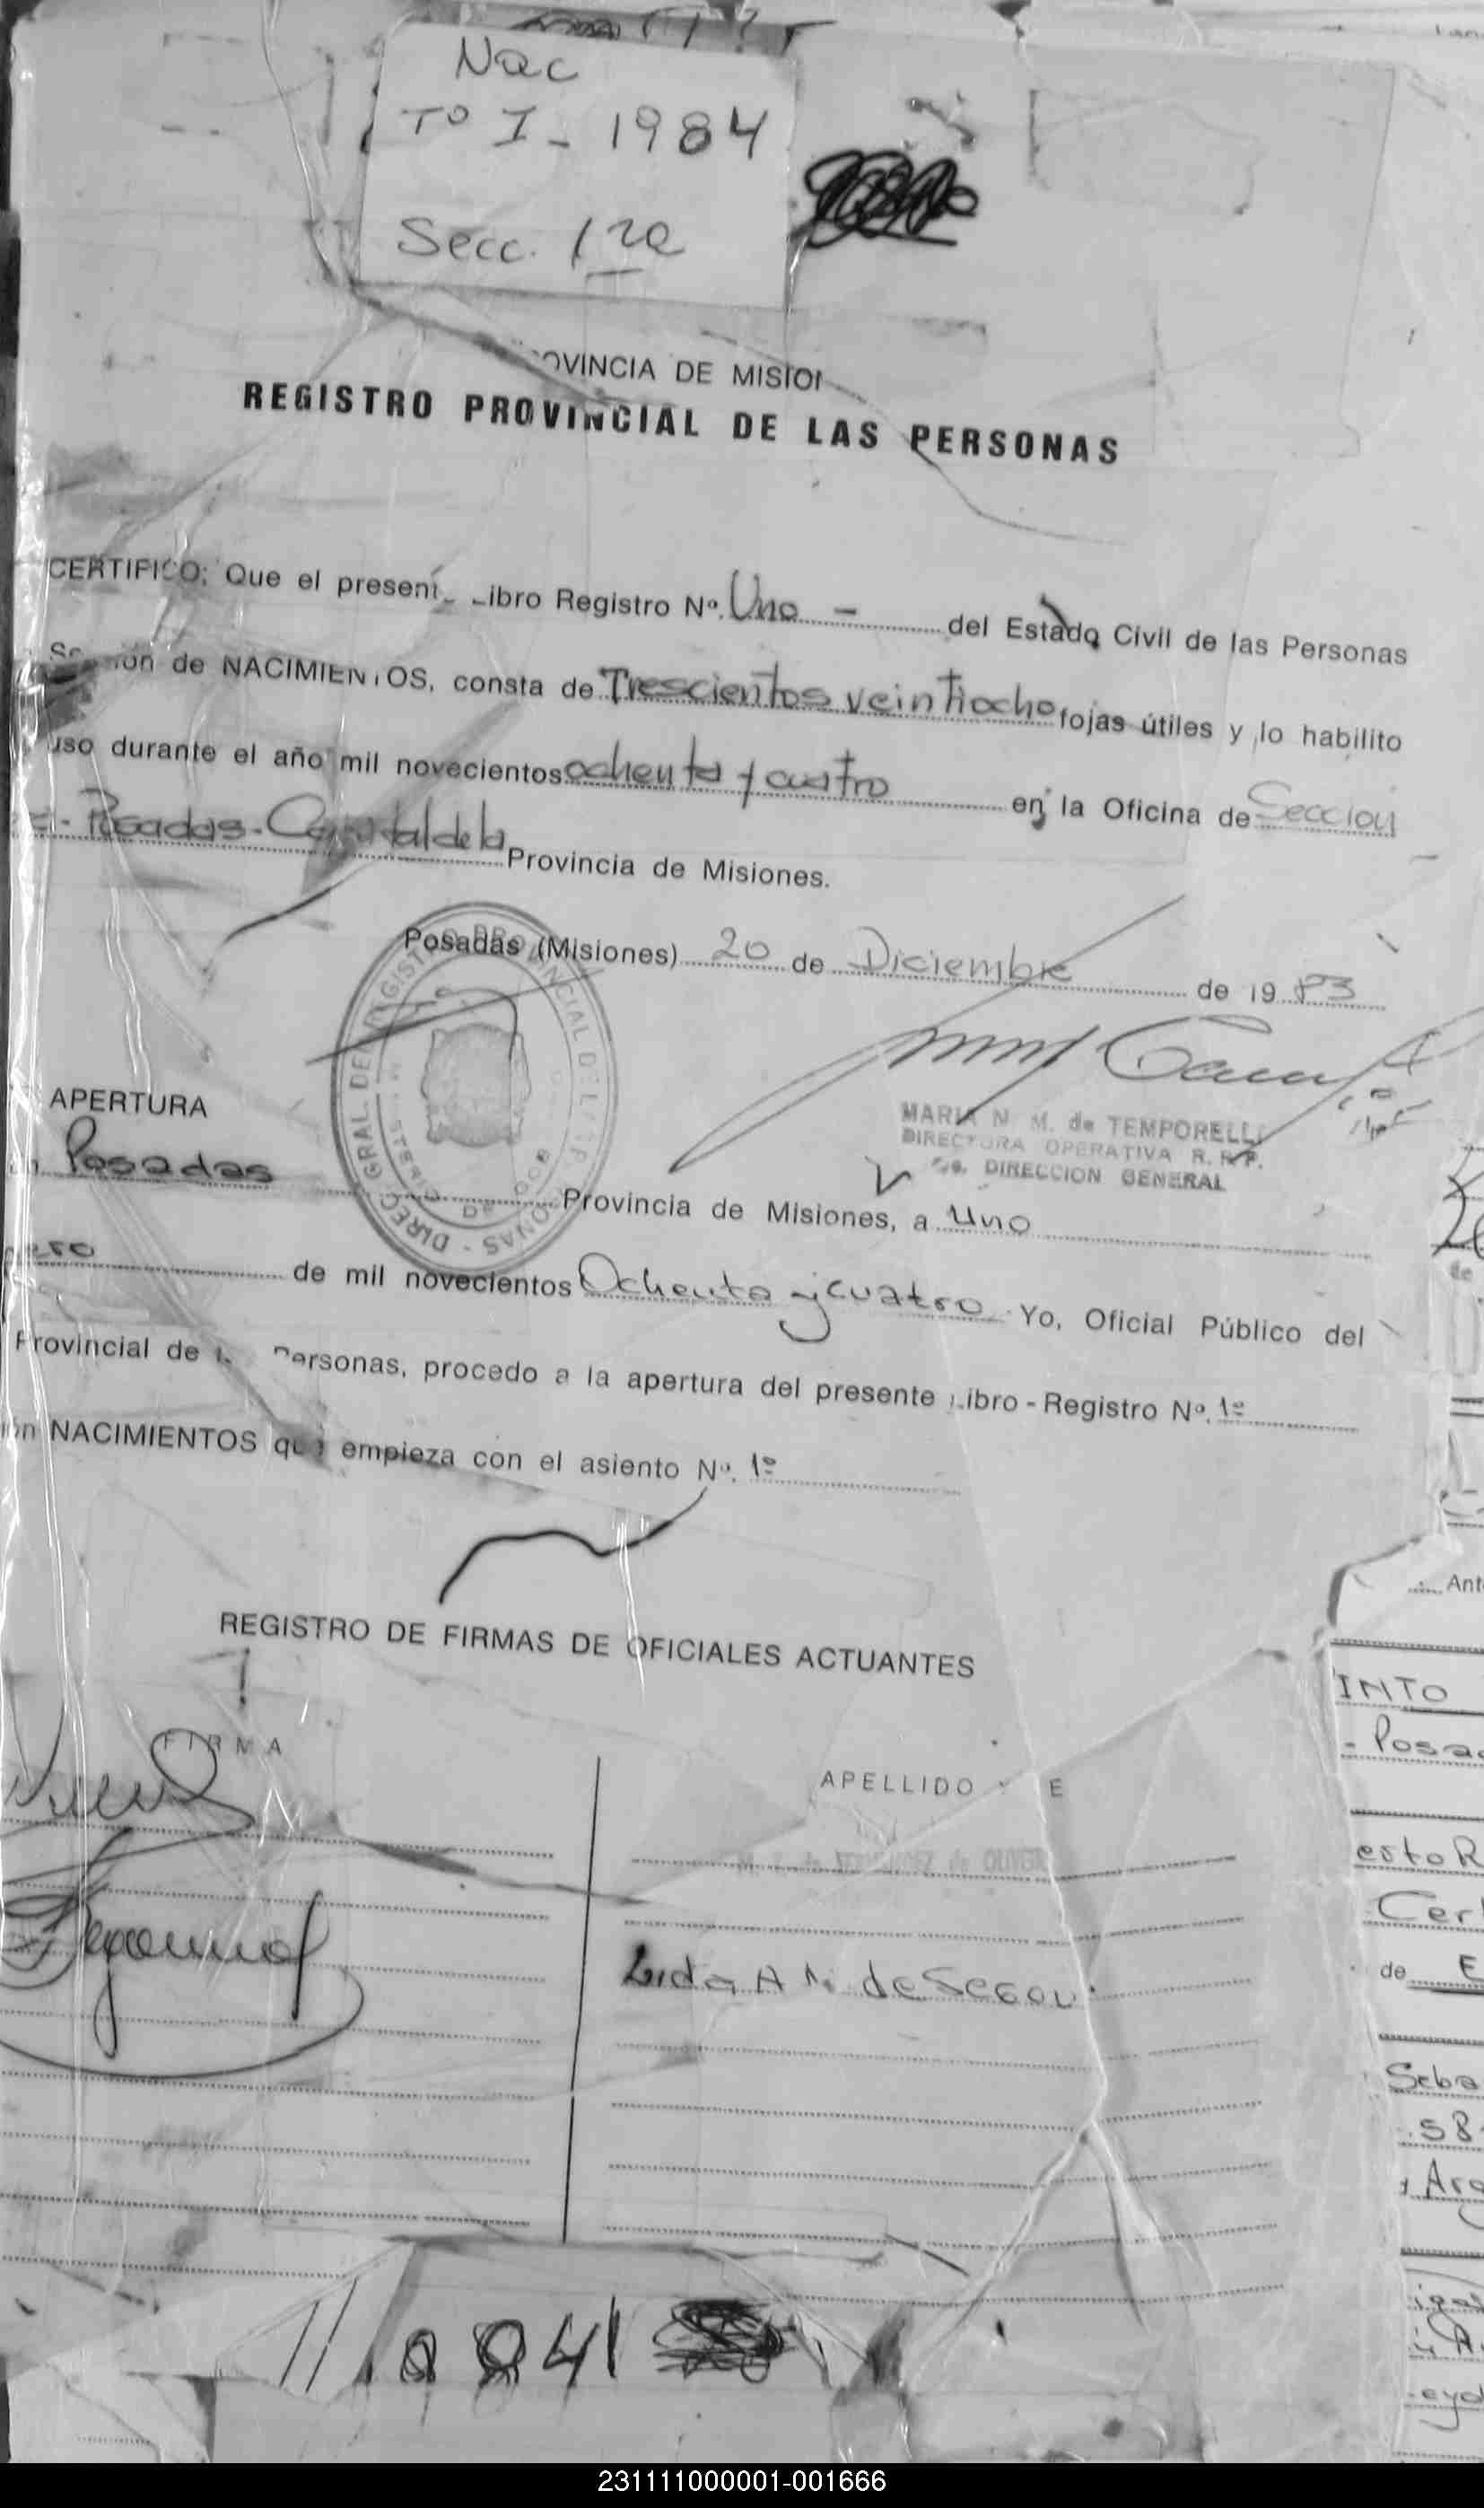 Nac
Tº I - 1984
Secc. 1ra
OVINCIA DE MISION
REGISTRO PROVINCIAL DE LAS PERSONAS
CERTIFICO; Que el present Libro Registro Nº. Uno - del Estado Civil de las Personas
Sección de NACIMIENTOS, consta de Trescientos veintiocho fojas útiles y lo habilito
uso durante el año mil novecientos ochenta y cuatro en la Oficina de Seccion
- Posadas - Capital de la Provincia de Misiones.
Posadas (Misiones) 20 de Diciembre de 1983
MARIA N. M. de TEMPORELLI
DIRECTORA OPERATIVA R.P.P.
DIRECCION GENERAL
APERTURA
Posadas Provincia de Misiones, a Uno
ero de mil novecientos Ochenta y cuatro Yo, Oficial Público del
Provincial de Personas, procedo a la apertura del presente Libro - Registro Nº. 1º
ón NACIMIENTOS que empieza con el asiento Nº. 1º
REGISTRO DE FIRMAS DE OFICIALES ACTUANTES
FIRMA
APELLIDO Y E
de OLIVEIRA
Lida A. de
INTO
- Posad
esto R
Cer
de E
Seba
58
y Arg
Ant
231111000001-001666